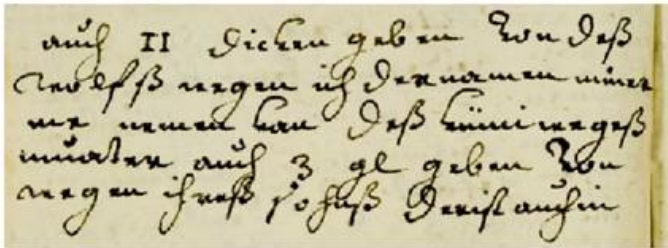 auch II dicken geben von deß
wolfß wegen ich der namen nimer
me nemen kan deß küniweges
muater auch 3 gl geben von
wegen ihreß sohnß der ist auch in